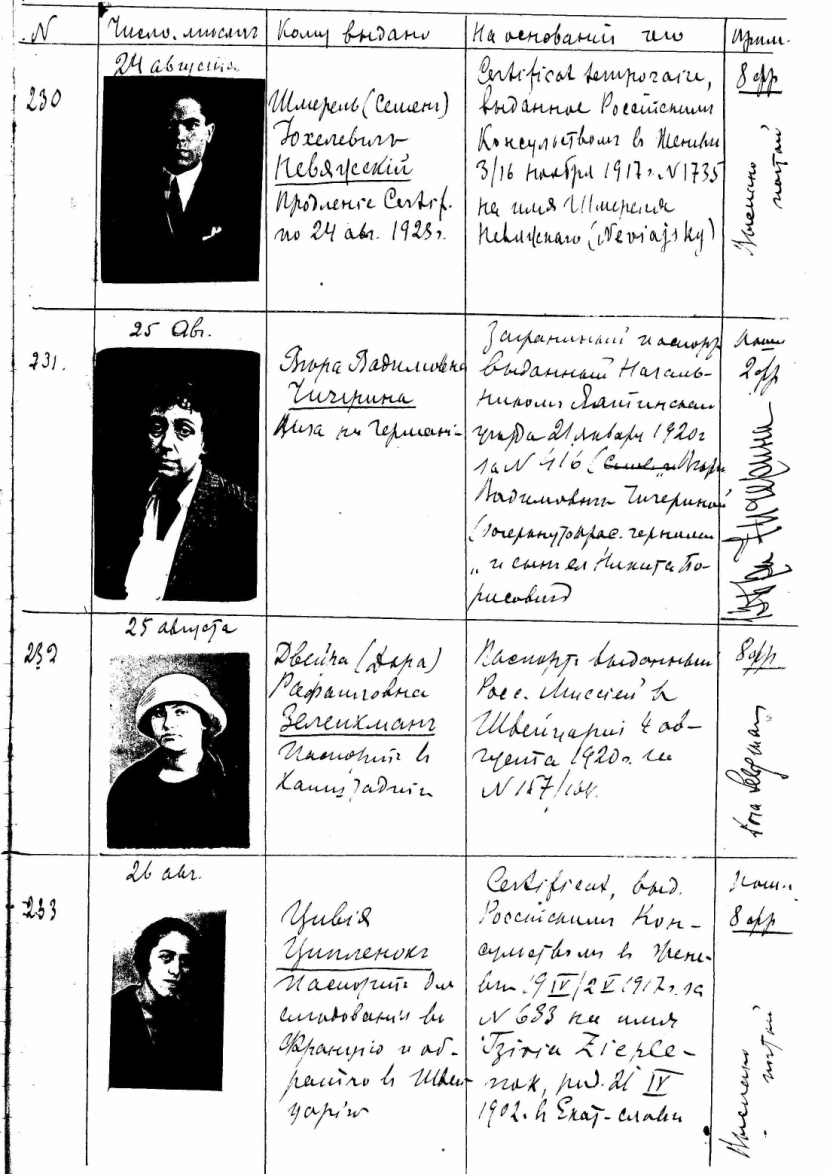 N Число. мѣсяцъ Кому выдано На основаніи чего Прим.
230
24 августа
Шмерель (Семенъ)
Іохелевичъ
Невяжскій
Продленіе Certif.
по 24 авг. 1923 г.
Certificat temporaire,
выданное Россійскимъ
Консульствомъ въ Женевѣ
3/16 ноября 1917 г. N 1735
на имя Шмереля
Невяжскаго (Neviajsky)
8 фр
Выслано
почтой
231.
25 Авг.
Вѣра Вадимовна
Чичерина
Виза на Герман
Заграничный паспорт
выданный Началь-
никомъ Ялтинскаго
уѣзда 21 января 1920 г
за N 416 Вѣры
Вадимовны Чичериной
(зачеркнуто крас. чернилами
„и сынъ ея Никита Бо-
рисовичъ
2 фр
Вѣра Чичерина
232
25 августа
Двейра (Дора)
Рафаиловна
Зелихманъ
Паспортъ въ
Паспортъ выданный
Росс. Миссіей въ
Швейцаріи 4 ав-
густа 1920 г. за
N 157
8 фр
Dora
233
26 авг.
Цивія
Ципленокъ
Паспортъ для
слѣдованія во
Францію и об-
ратно въ Швей-
царію
Certificat, выд.
Россійскимъ Кон-
сульствомъ въ Жене-
вѣ 19 IV/2 V 1917 г. за
N 683 на имя
Tzivia Zieple-
nok, род. 21 IV
1902. въ Екат-славѣ
8 фр
Выслано
почтой